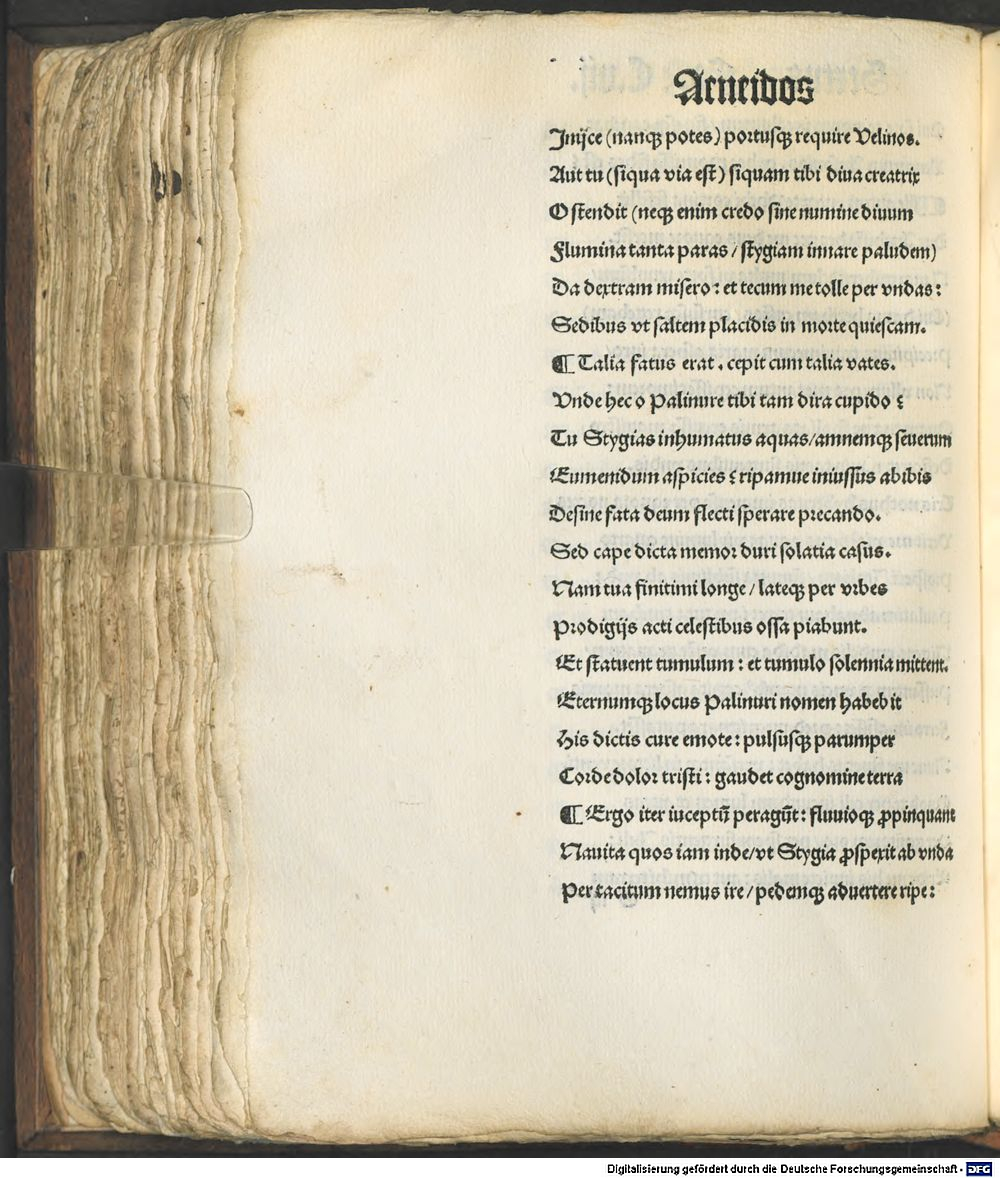 Aeneidos
Jnijce (nanqꝫ potes) portusqꝫ require Velinos.
Aut tu (siqua via est) siquam tibi diua creatrix
Ostendit (neqꝫ enim credo sine numine diuum
Flumina tanta paras / stygiam innare paludem)
Da dextram misero: et tecum me tolle per vndas:
Sedibus vt saltem placidis in morte quiescam.
¶ Talia fatus erat. cepit cum talia vates.
Vnde hec o Palinure tibi tam dira cupido?
Tu Stygias inhumatus aquas/amnemqꝫ seuerum
Eumenidum aspicies? ripamue iniussus abibis
Desine fata deum flecti sperare precando.
Sed cape dicta memor duri solatia casus.
Nam tua finitimi longe / lateqꝫ per vrbes
Prodigijs acti celestibus ossa piabunt.
Et statuent tumulum: et tumulo solennia mittent.
Eternumqꝫ locus Palinuri nomen habebit
His dictis cure emote: pulsusqꝫ parumper
Corde dolor tristi: gaudet cognomine terra
¶ Ergo iter iuceptū peragūt: fluuioqꝫ ꝓpinquant
Nauita quos iam inde/vt Stygia ꝓspexit ab vnda
Per tacitum nemus ire / pedemqꝫ aduertere ripe:
Digitalisierung gefördert durch die Deutsche Forschungsgemeinschaft - DFG